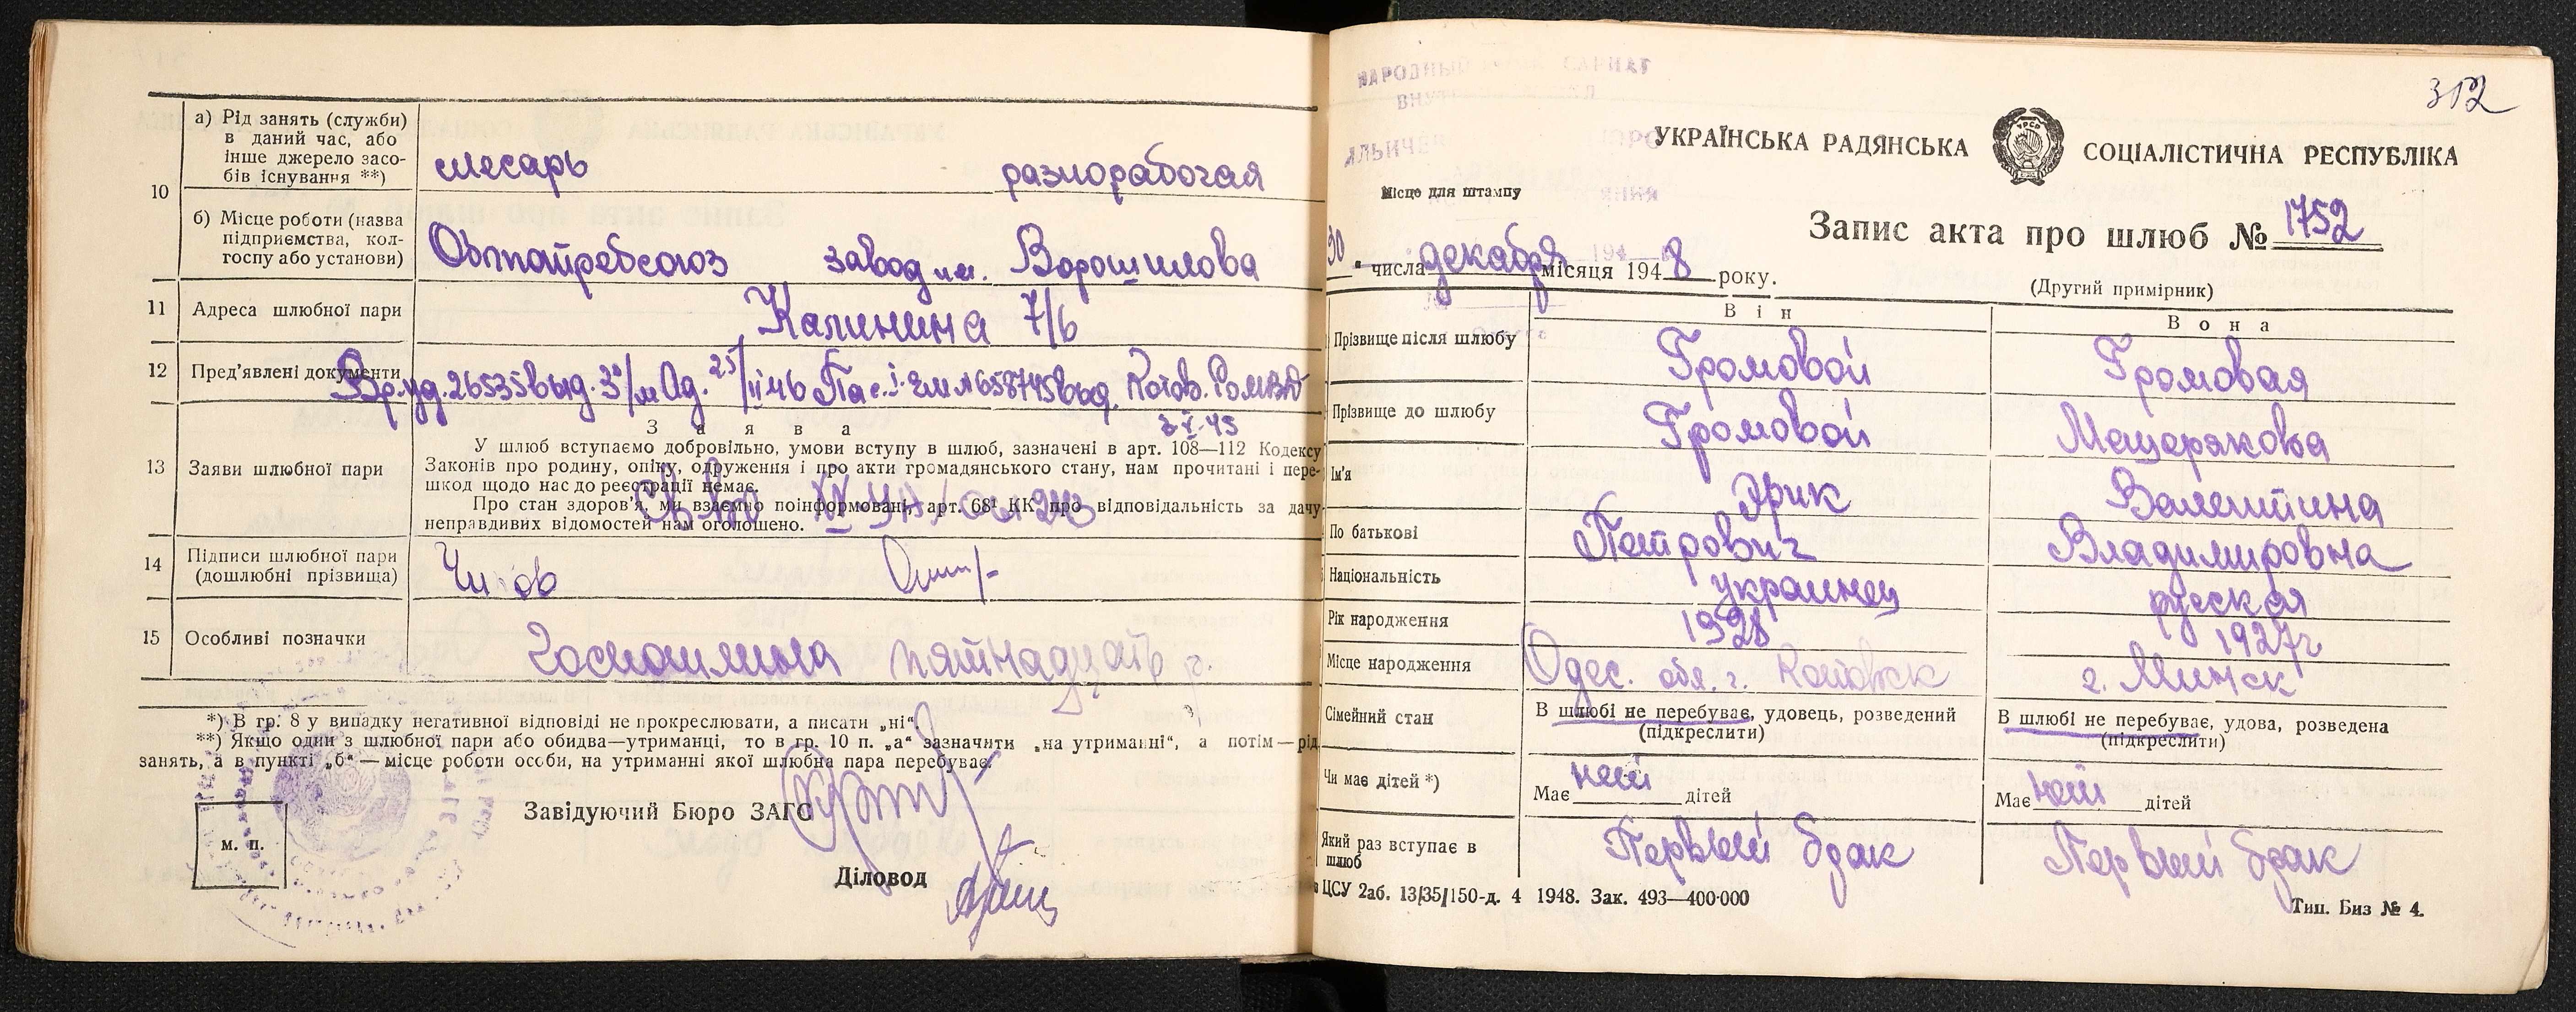 10
а) Рід занять (служби)
в даний час, або
інше джерело засо-
бів існування **)
слесарь
разнорабочая
б) Місце роботи (назва
підприємства, кол-
госпу або установи)
завод им. Ворошилова
11 Адреса шлюбної пари
Калинина 7/6
12 Пред'явлені документи
Вр. уд. 26535 выд.
13 Заяви шлюбної пари
З а я в а
У шлюб вступаємо добровільно, умови вступу в шлюб, зазначені в арт. 108—112 Кодексу
Законів про родину, опіку, одруження і про акти громадянського стану, нам прочитані і пере-
шкод щодо нас до реєстрації немає.
Про стан здоров'я, ми взаємно поінформовані, арт. 68¹ КК про відповідальність за дачу
неправдивих відомостей нам оголошено.
14 Підписи шлюбної пари
(дошлюбні прізвища)
15 Особливі позначки
Госпошлина пятнадцать р.
*) В гр. 8 у випадку негативної відповіді не прокреслювати, а писати „ні“.
**) Якщо один з шлюбної пари або обидва—утриманці, то в гр. 10 п. „а“ зазначити „на утриманні“, а потім—рід
занять, а в пункті „б“—місце роботи особи, на утриманні якої шлюбна пара перебуває.
м. п.
Завідуючий Бюро ЗАГС
Діловод
312
УКРАЇНСЬКА РАДЯНСЬКА СОЦІАЛІСТИЧНА РЕСПУБЛІКА
Місце для штампу
Запис акта про шлюб № 1752
30 „ числа декабря місяця 1948 року.
(Другий примірник)
Він
Вона
Прізвище після шлюбу
Громовой
Громовая
Прізвище до шлюбу
Громовой
Мещерякова
Ім'я
Эрик
Валентина
По батькові
Петрович
Владимировна
Національність
украинец
русская
Рік народження
1928
1927г
Місце народження
Одес. обл. г. Котовск
г. Минск
Сімейний стан
В шлюбі не перебуває, удовець, розведений
(підкреслити)
В шлюбі не перебуває, удова, розведена
(підкреслити)
Чи має дітей *)
Має нет дітей
Має нет дітей
Який раз вступає в
шлюб
Первый брак
Первый брак
ЦСУ 2аб. 13/35/150-д. 4 1948. Зак. 493—400·000
Тип. Биз № 4.